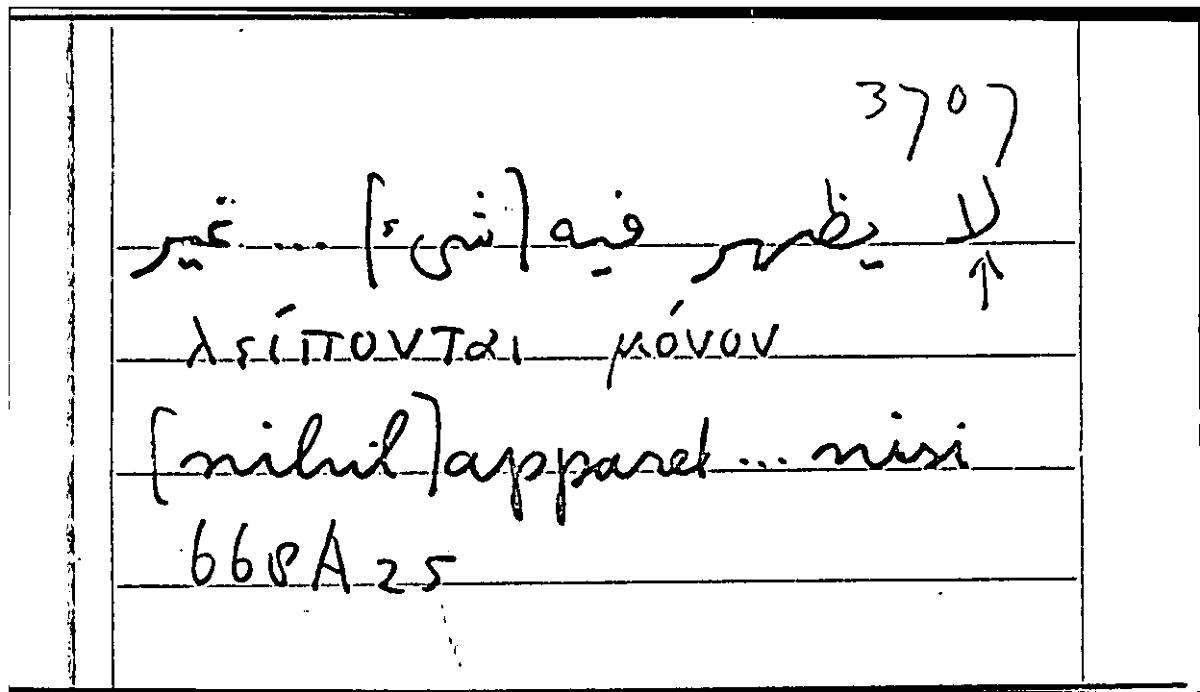 3707
لا يظهر فيه [شيء] ... غير
↑
λείπονται μόνον
[nihil] apparet ... nisi
668A25